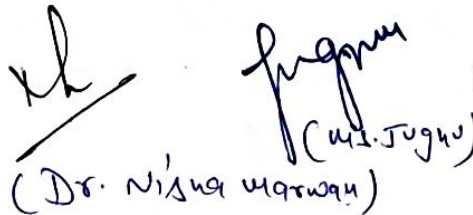 (Ms. Jugnu)
(Dr. Nisha Marwah)